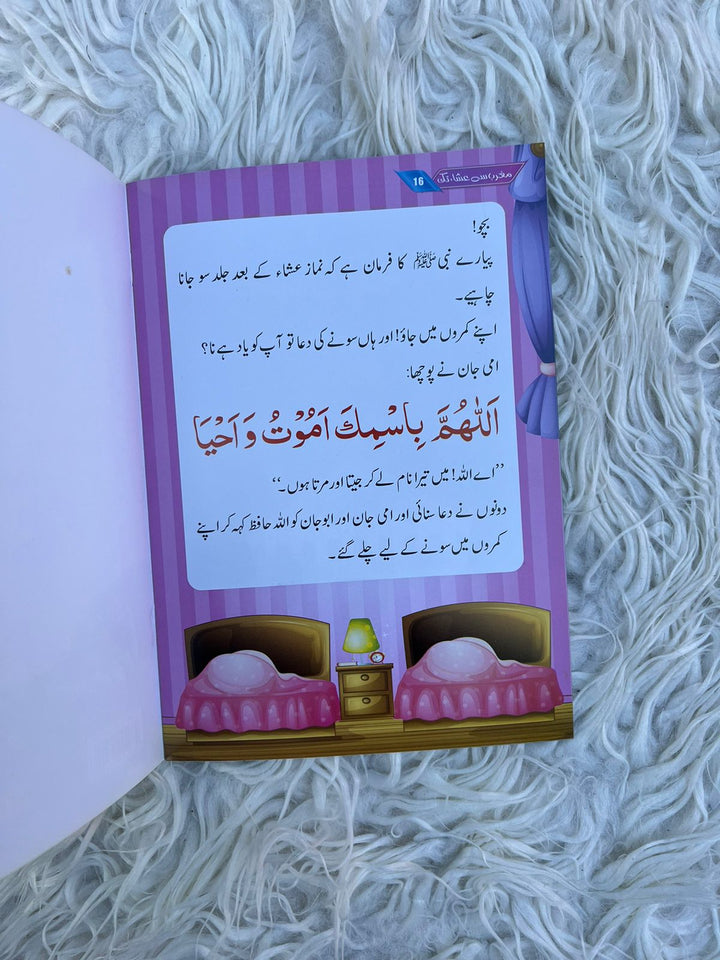 مغرب سے عشاء تک
16
بچو!
پیارے نبی ﷺ کا فرمان ہے کہ نماز عشاء کے بعد جلد سو جانا
چاہیے۔
اپنے کمروں میں جاؤ! اور ہاں سونے کی دعا تو آپ کو یاد ہے نا؟
امی جان نے پوچھا:
اَللّٰهُمَّ بِاسْمِكَ اَمُوْتُ وَ اَحْيَا
’’اے اللہ! میں تیرا نام لے کر جیتا اور مرتا ہوں۔‘‘
دونوں نے دعا سنائی اور امی جان اور ابو جان کو اللہ حافظ کہہ کر اپنے
کمروں میں سونے کے لیے چلے گئے۔